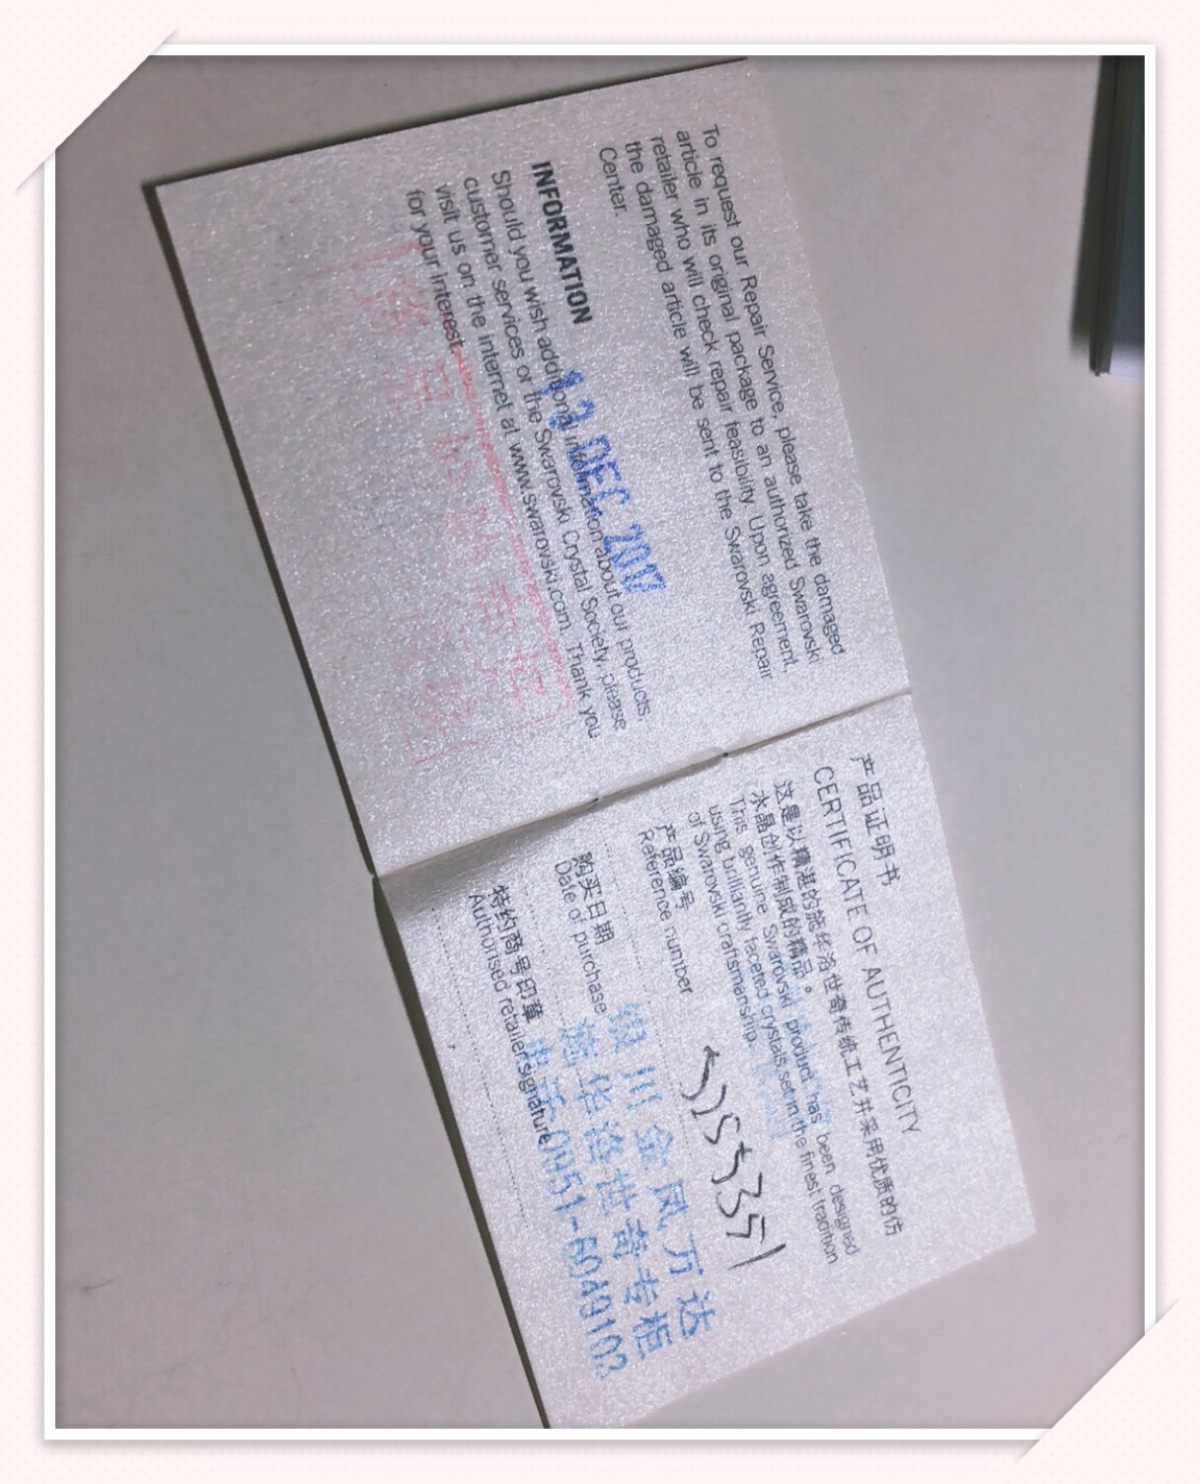 To request our Repair Service, please take the damaged
article in its original package to an authorized Swarovski
retailer who will check repair feasibility. Upon agreement,
the damaged article will be sent to the Swarovski Repair
Center.
INFORMATION
Should you wish additional information about our products,
customer services or the Swarovski Crystal Society, please
visit us on the internet at www.swarovski.com. Thank you
for your interest.
DEC
产品证明书
CERTIFICATE OF AUTHENTICITY
这是以精湛的施华洛世奇传统工艺并采用优质的仿
水晶创作制成的精品。
This genuine Swarovski product has been designed
using brilliantly faceted crystals set in the finest tradition
of Swarovski craftsmanship.
产品编号
Reference number
购买日期
Date of purchase
特约商号印章
Authorised retailer signature
银川金凤万达
施华洛世奇专柜
0951-6049102